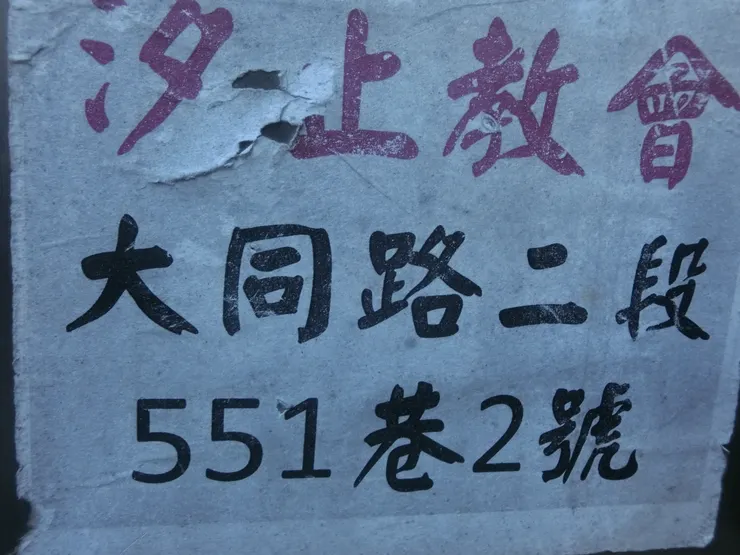 汐止教會
大同路二段
551巷2號